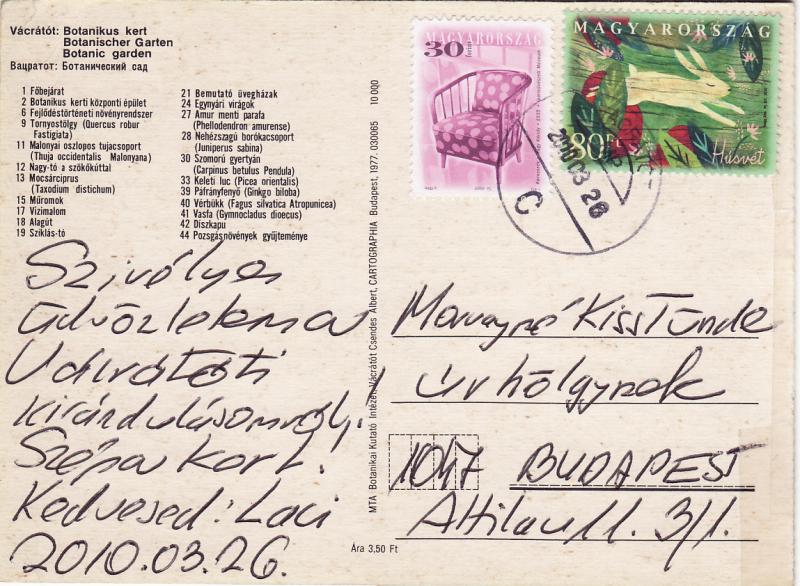 Vácrátót: Botanikus kert
Botanischer Garten
Botanic garden
Вацратот: Ботанический сад
1 Főbejárat
2 Botanikus kerti központi épület
6 Fejlődéstörténeti növényrendszer
9 Tornyostölgy (Quercus robur
Fastigiata)
11 Malonyai oszlopos tujacsoport
(Thuja occidentalis Malonyana)
12 Nagy-tó a szökőkúttal
13 Mocsárciprus
(Taxodium distichum)
15 Műromok
17 Vízimalom
18 Alagút
19 Sziklás-tó
21 Bemutató üvegházak
24 Egynyári virágok
27 Amur menti parafa
(Phellodendron amurense)
28 Nehézszagú borókacsoport
(Juniperus sabina)
30 Szomorú gyertyán
(Carpinus betulus Pendula)
33 Keleti luc (Picea orientalis)
39 Páfrányfenyő (Ginkgo biloba)
40 Vérbükk (Fagus silvatica Atropunicea)
41 Vasfa (Gymnocladus dioecus)
42 Díszkapu
44 Pozsgásnövények gyűjteménye
MTA Botanikai Kutató Intézet, Vácrátót Csendes Albert, CARTOGRAPHIA Budapest, 1977. 030065 10 000
30 forint
MAGYARORSZÁG
MAGYARORSZÁG
80Ft
Húsvét
2010 03. 26
C
Szívélyes
üdvözletem a
Vácrátóti
kirándulásomról!
Szép a kert!
Kedvesed: Laci
2010.03.26.
Kiss Tünde
úrhölgynek
1047 BUDAPEST
Attila u 11. 3/1.
Ára 3,50 Ft